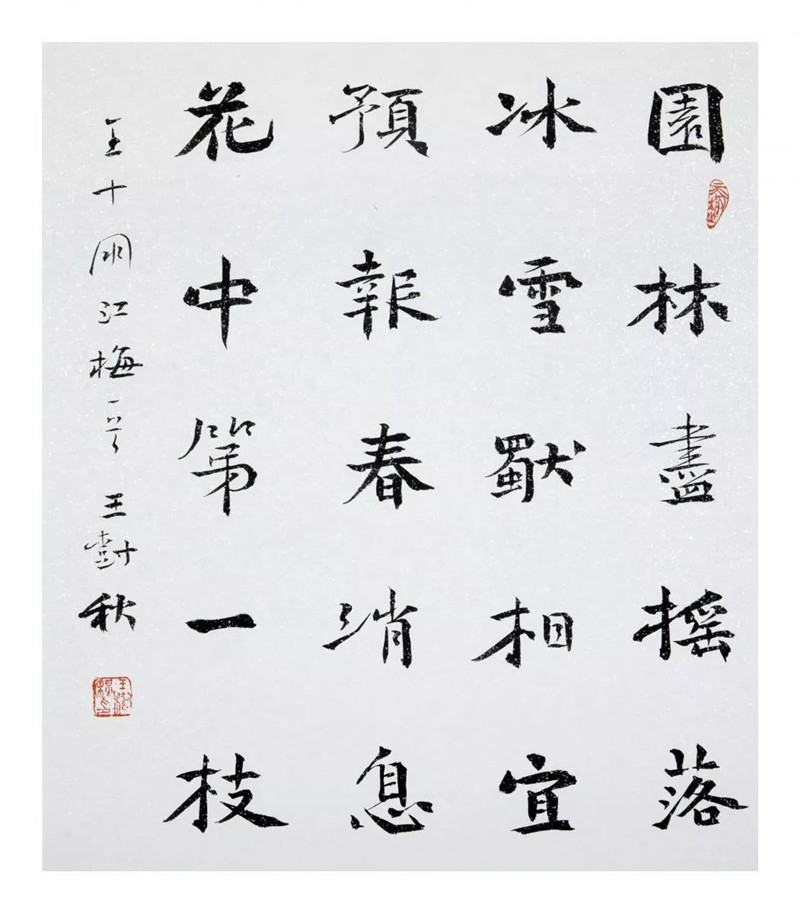 園林盡摇落
冰雪獨相宜
預報春消息
花中第一枝
王十朋江梅一首 王樹秋